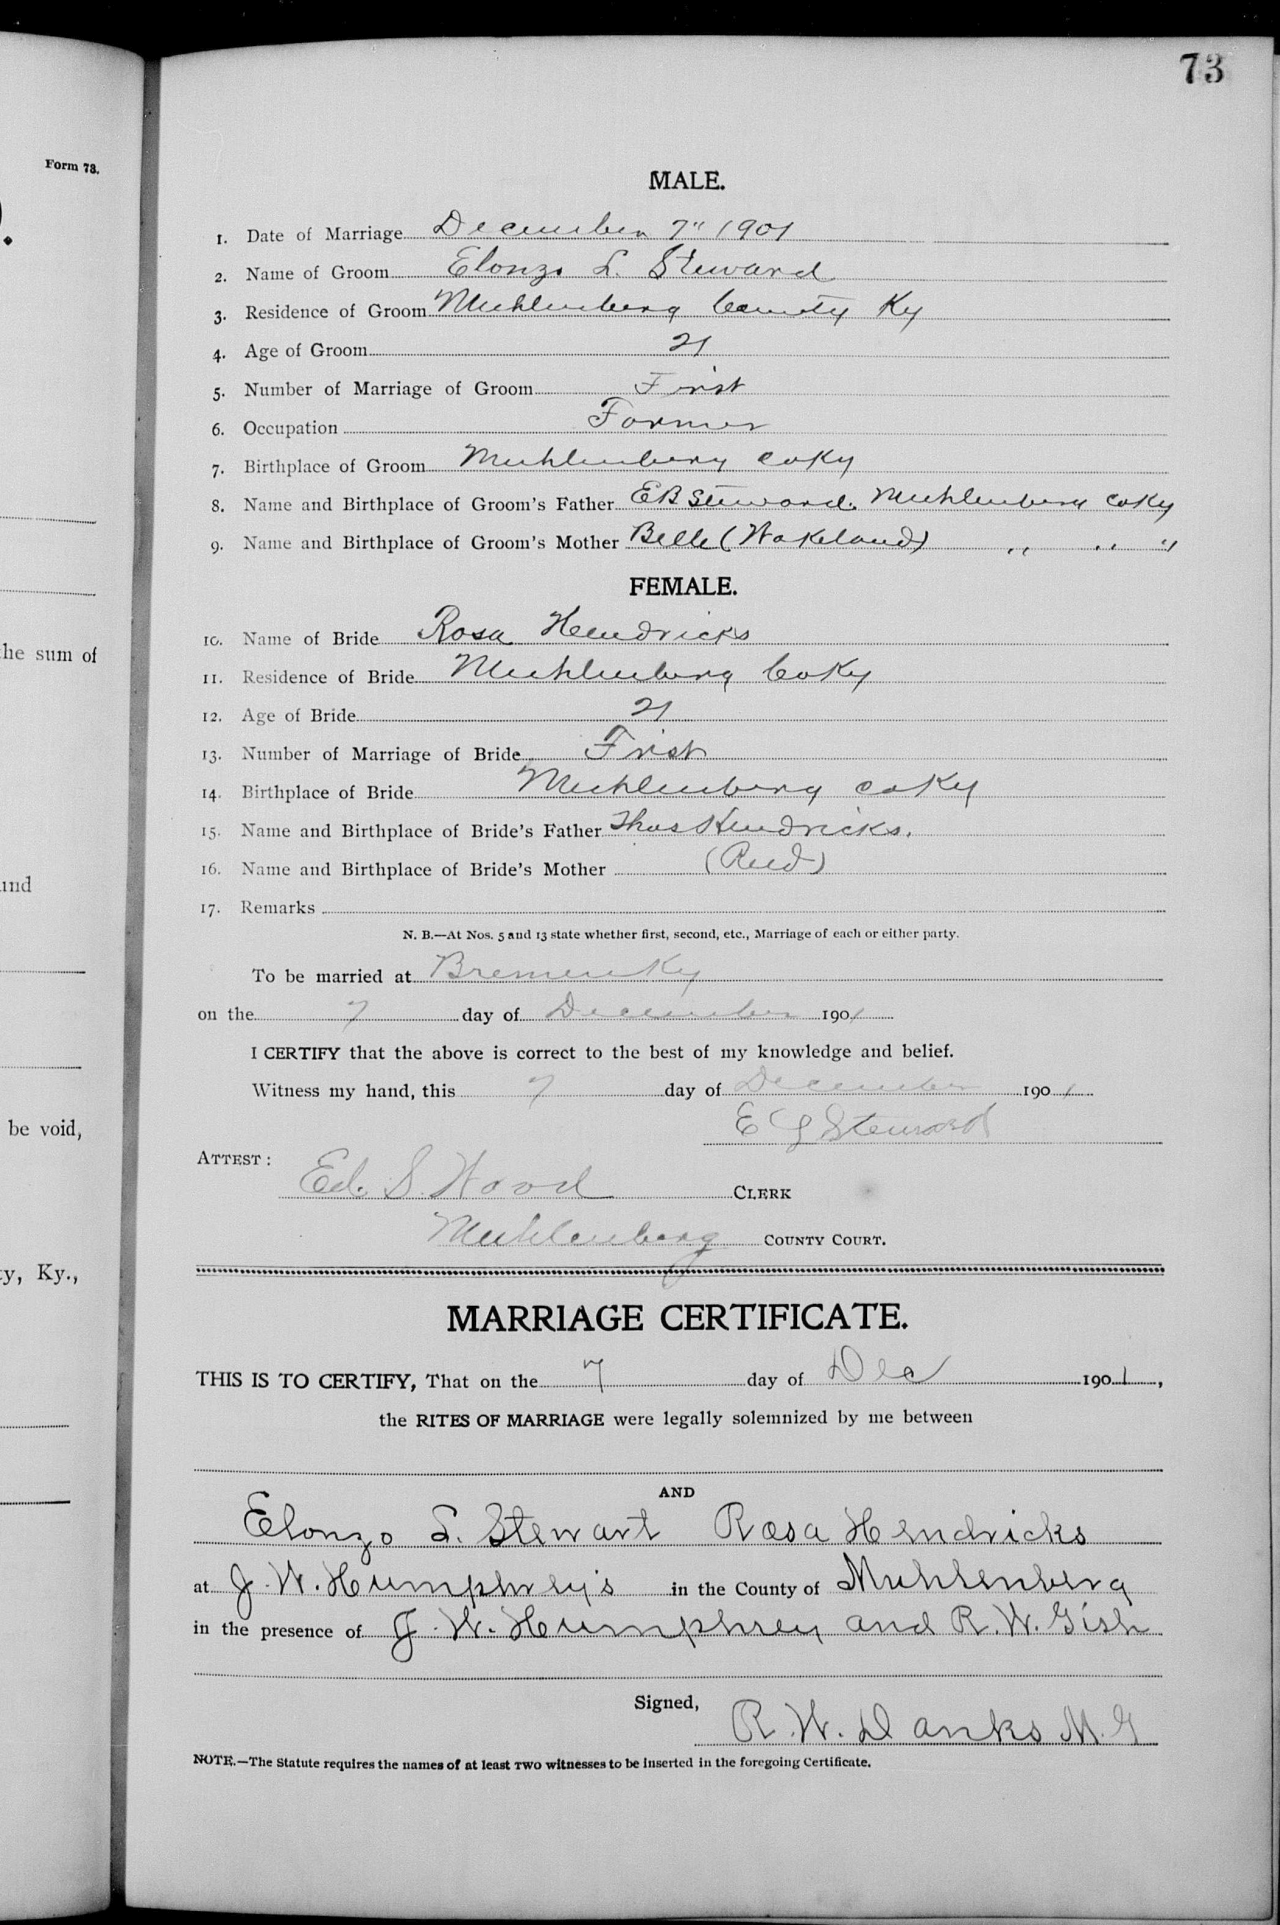 73
Form 73.
MALE.
1. Date of Marriage December 7" 1901
2. Name of Groom Elonzo L. Steward
3. Residence of Groom Muhlenberg County Ky
4. Age of Groom 21
5. Number of Marriage of Groom First
6. Occupation Farmer
7. Birthplace of Groom Muhlenberg co Ky
8. Name and Birthplace of Groom's Father EB Steward. Muhlenberg co Ky
9. Name and Birthplace of Groom's Mother Belle (Wakeland) " " "
FEMALE.
10. Name of Bride Rosa Hendricks
11. Residence of Bride Muhlenberg Co Ky
12. Age of Bride 21
13. Number of Marriage of Bride First
14. Birthplace of Bride Muhlenberg co Ky
15. Name and Birthplace of Bride's Father Thos Hendricks.
16. Name and Birthplace of Bride's Mother (Reed)
17. Remarks
N. B.—At Nos. 5 and 13 state whether first, second, etc., Marriage of each or either party.
To be married at Bremen Ky
on the 7 day of December 1901
I CERTIFY that the above is correct to the best of my knowledge and belief.
Witness my hand, this 7 day of December 1901
E L Steward
ATTEST:
Ed. S. Wood CLERK
Muhlenberg COUNTY COURT.
MARRIAGE CERTIFICATE.
THIS IS TO CERTIFY, That on the 7 day of Dec 1901,
the RITES OF MARRIAGE were legally solemnized by me between
AND
Elonzo L. Stewart Rosa Hendricks
at J. W. Humphrey's in the County of Muhlenberg
in the presence of J. W. Humphrey and R. W. Gish
Signed,
R. W. Danks M. G
NOTE.—The Statute requires the names of at least TWO witnesses to be inserted in the foregoing Certificate.
the sum of
and
be void,
ty, Ky.,